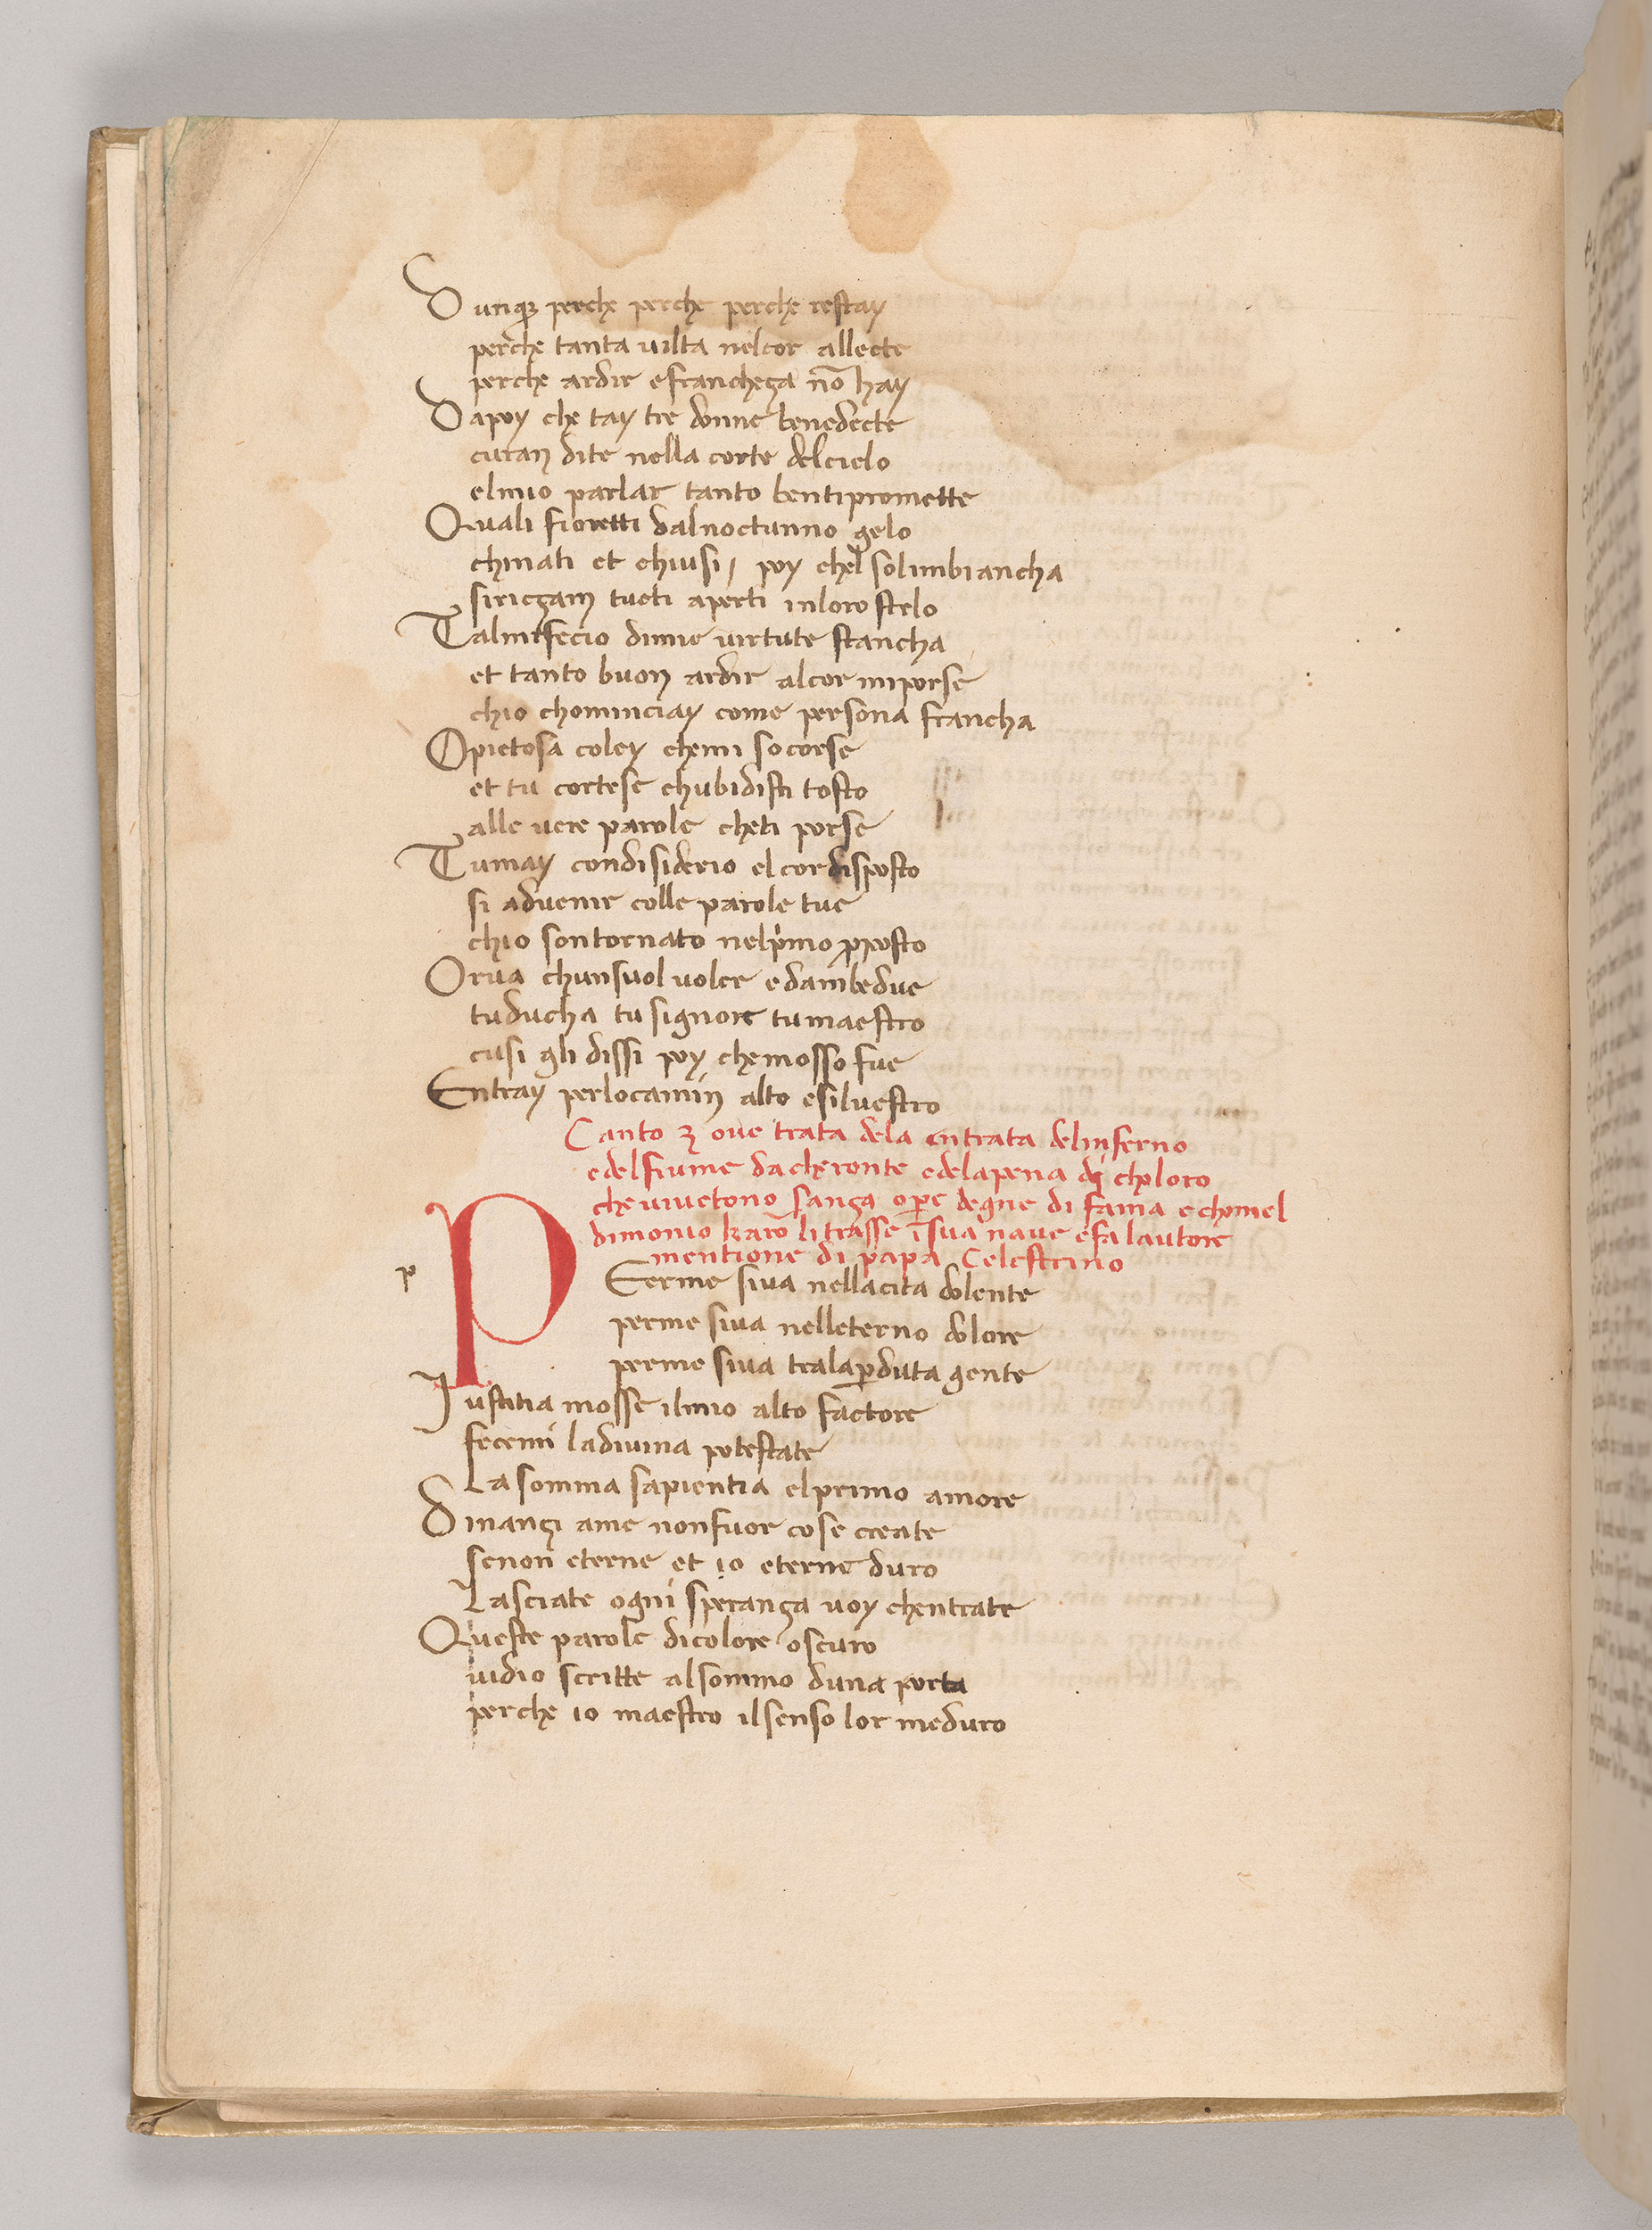 Dunqꝫ perche perche perche restay
perche tanta uilta nelcor allecte
perche ardir e francheza nō hay
Dapoy che tay tre donne benedecte
curan dite nella corte delcielo
elmio parlar tanto bentipromette
Quali fioretti dalnocturno gelo
chinati et chiusi / poy chel solimbiancha
sirizzam tucti aperti inloro stelo
Talmifecio dimie uirtute stancha
et tanto buon ardir alcor miporse
chio chominciay come persona francha
Opietosa coley chemi socorse
et tu cortese chubidisti tosto
alle uere parole cheti porse
Tumay condisiderio el cor disposto
si aduenir colle parole tue
chio sontornato nelp̍mo ꝓposto
Orua chunsuol uoler edambedue
tuducha tusignore tumaestro
cusi gli dissi poy chemosso fue
Entray perlocamin alto esiluestro
Canto 3 oue trata dela entrata delinferno
edelfiume dacheronte edelapena di choloro
che uiuetono sanza oꝑe degne di fama echomel
dimonio karō li trasse ī sua naue efa lautore
mentione di papa Celestrino
p
P Eerme siua nellacita dolente
perme siua nelleterno dolore
perme siua tralaꝑduta gente
Iustitia mosse ilmio alto factore
fecemi ladiuina potestate
La somma sapientia elprimo amore
Dinanzi ame nonfuor cose create
senon eterne et io eterne duro
Lasciate ogni speranza uoy chentrate
Queste parole dicolore oscuro
uidio scritte alsommo duna porta
perche io maestro ilsenso lor meduro